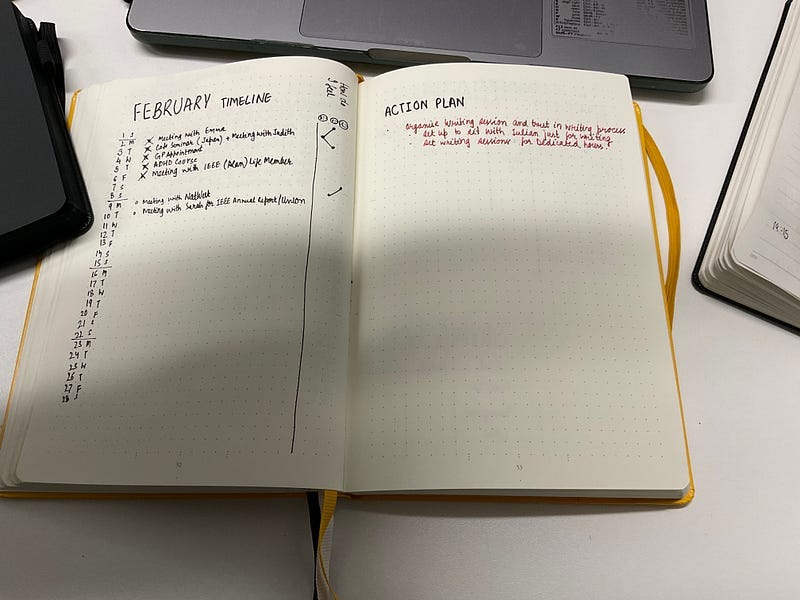 FEBRUARY TIMELINE
1 S
2 M x Meeting with Emma
3 T x Cafe Seminar (Japan) + Meeting with Judith
4 W x GP Appointment
5 T x ADHD Course
6 F x Meeting with IEEE (Alan) Life Member
7 S
8 S
9 M o Meeting with
10 T o Meeting with Sarah for IEEE Annual Report/Union
11 W
12 T
13 F
14 S
15 S
16 M
17 T
18 W
19 T
20 F
21 S
22 S
23 M
24 T
25 W
26 T
27 F
28 S
32
ACTION PLAN
Organise writing session and built in writing process
set up to sit with Julian just for writing
set writing sessions for Dedicated hours
33
14:15